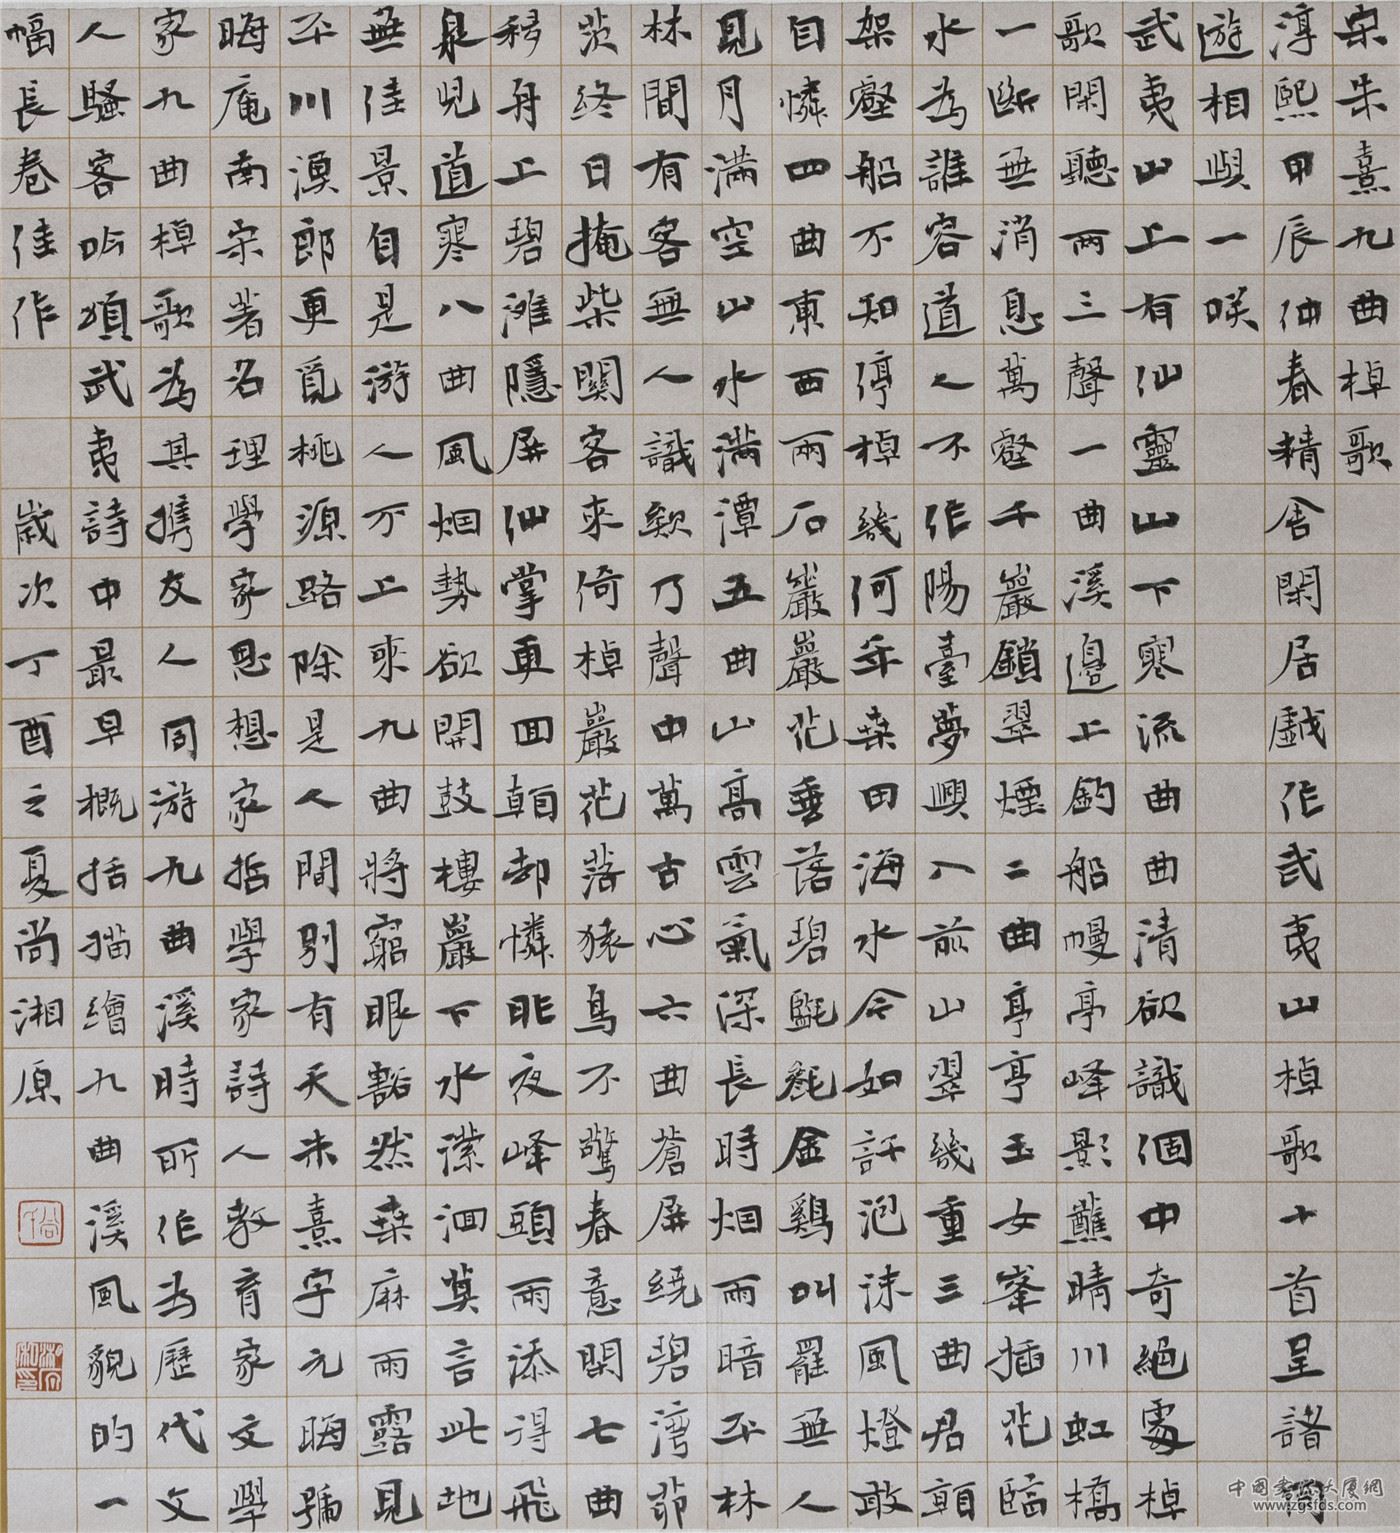 宋朱熹九曲棹歌
淳熙甲辰仲春精舍閑居戲作武夷山棹歌十首呈諸同
遊相與一咲
武夷山上有仙靈山下寒流曲曲清欲識個中奇絕處棹
歌閑聽兩三聲一曲溪邊上釣船幔亭峰影蘸晴川虹橋
一斷無消息萬壑千巖鎖翠煙二曲亭亭玉女峯插花臨
水為誰容道人不作陽臺夢興入前山翠幾重三曲君看
架壑船不知停棹幾何年桑田海水今如許泡沫風燈敢
自憐四曲東西兩石巖巖花垂落碧㲯毿金鷄叫罷無人
見月滿空山水滿潭五曲山高雲氣深長時烟雨暗平林
林間有客無人識欸乃聲中萬古心六曲蒼屏繞碧灣茆
茨終日掩柴關客來倚棹巖花落猿鳥不驚春意閑七曲
移舟上碧灘隱屏仙掌更回看却憐昨夜峰頭雨添得飛
泉道寒八曲風烟勢欲開鼓樓巖下水潆洄莫言此地
無佳景自是游人不上來九曲將窮眼豁然桑麻雨露見
平川漁郎更覓桃源路除是人間別有天朱熹字元晦號
晦庵南宋著名理學家思想家哲學家詩人教育家文學
家九曲棹歌為其携友人同游九曲溪時所作為歷代文
人騷客吟頌武夷詩中最早概括描繪九曲溪風貌的一
幅長卷佳作 歲次丁酉之夏尚湘原
中國書法大廈網
www.zgsfds.com